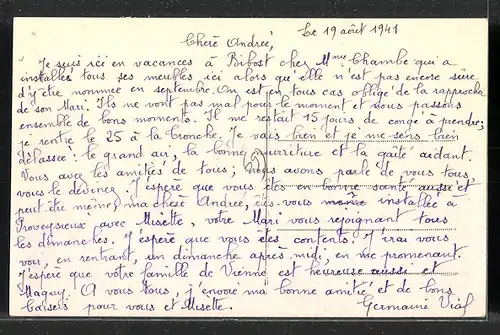 Le 19 août 1941
Chère Andrée,
Je suis ici en vacances à Bibost chez Mme Chambe qui a
installé tous ses meubles ici alors qu'elle n'est pas encore sûre
d'y être nommée en septembre. On est en tous cas obligé de la rapprocher
de son Mari. Ils ne vont pas mal pour le moment et nous passons
ensemble de bons moments. Il me restait 15 jours de congé à prendre;
je rentre le 25 à la Tronche. Je vais bien et je me sens bien
délassée : le grand air, la bonne nourriture et la gaîté aidant.
Vous avez les amitiés de tous; nous avons parlé de vous tous,
vous le devinez. J'espère que vous êtes en bonne santé aussi et
peut être même, ma chère Andrée, êtes-vous installée à
Proveysieux avec Misette, votre Mari vous rejoignant tous
les dimanches. J'espère que vous êtes contents. J'irai vous
voir, en rentrant, un dimanche après-midi, en me promenant.
J'espère que votre famille de Vienne est heureuse aussi et
Maguy. A vous tous, j'envoie ma bonne amitié, et de bons
baisers pour vous et Misette. Germaine Vial